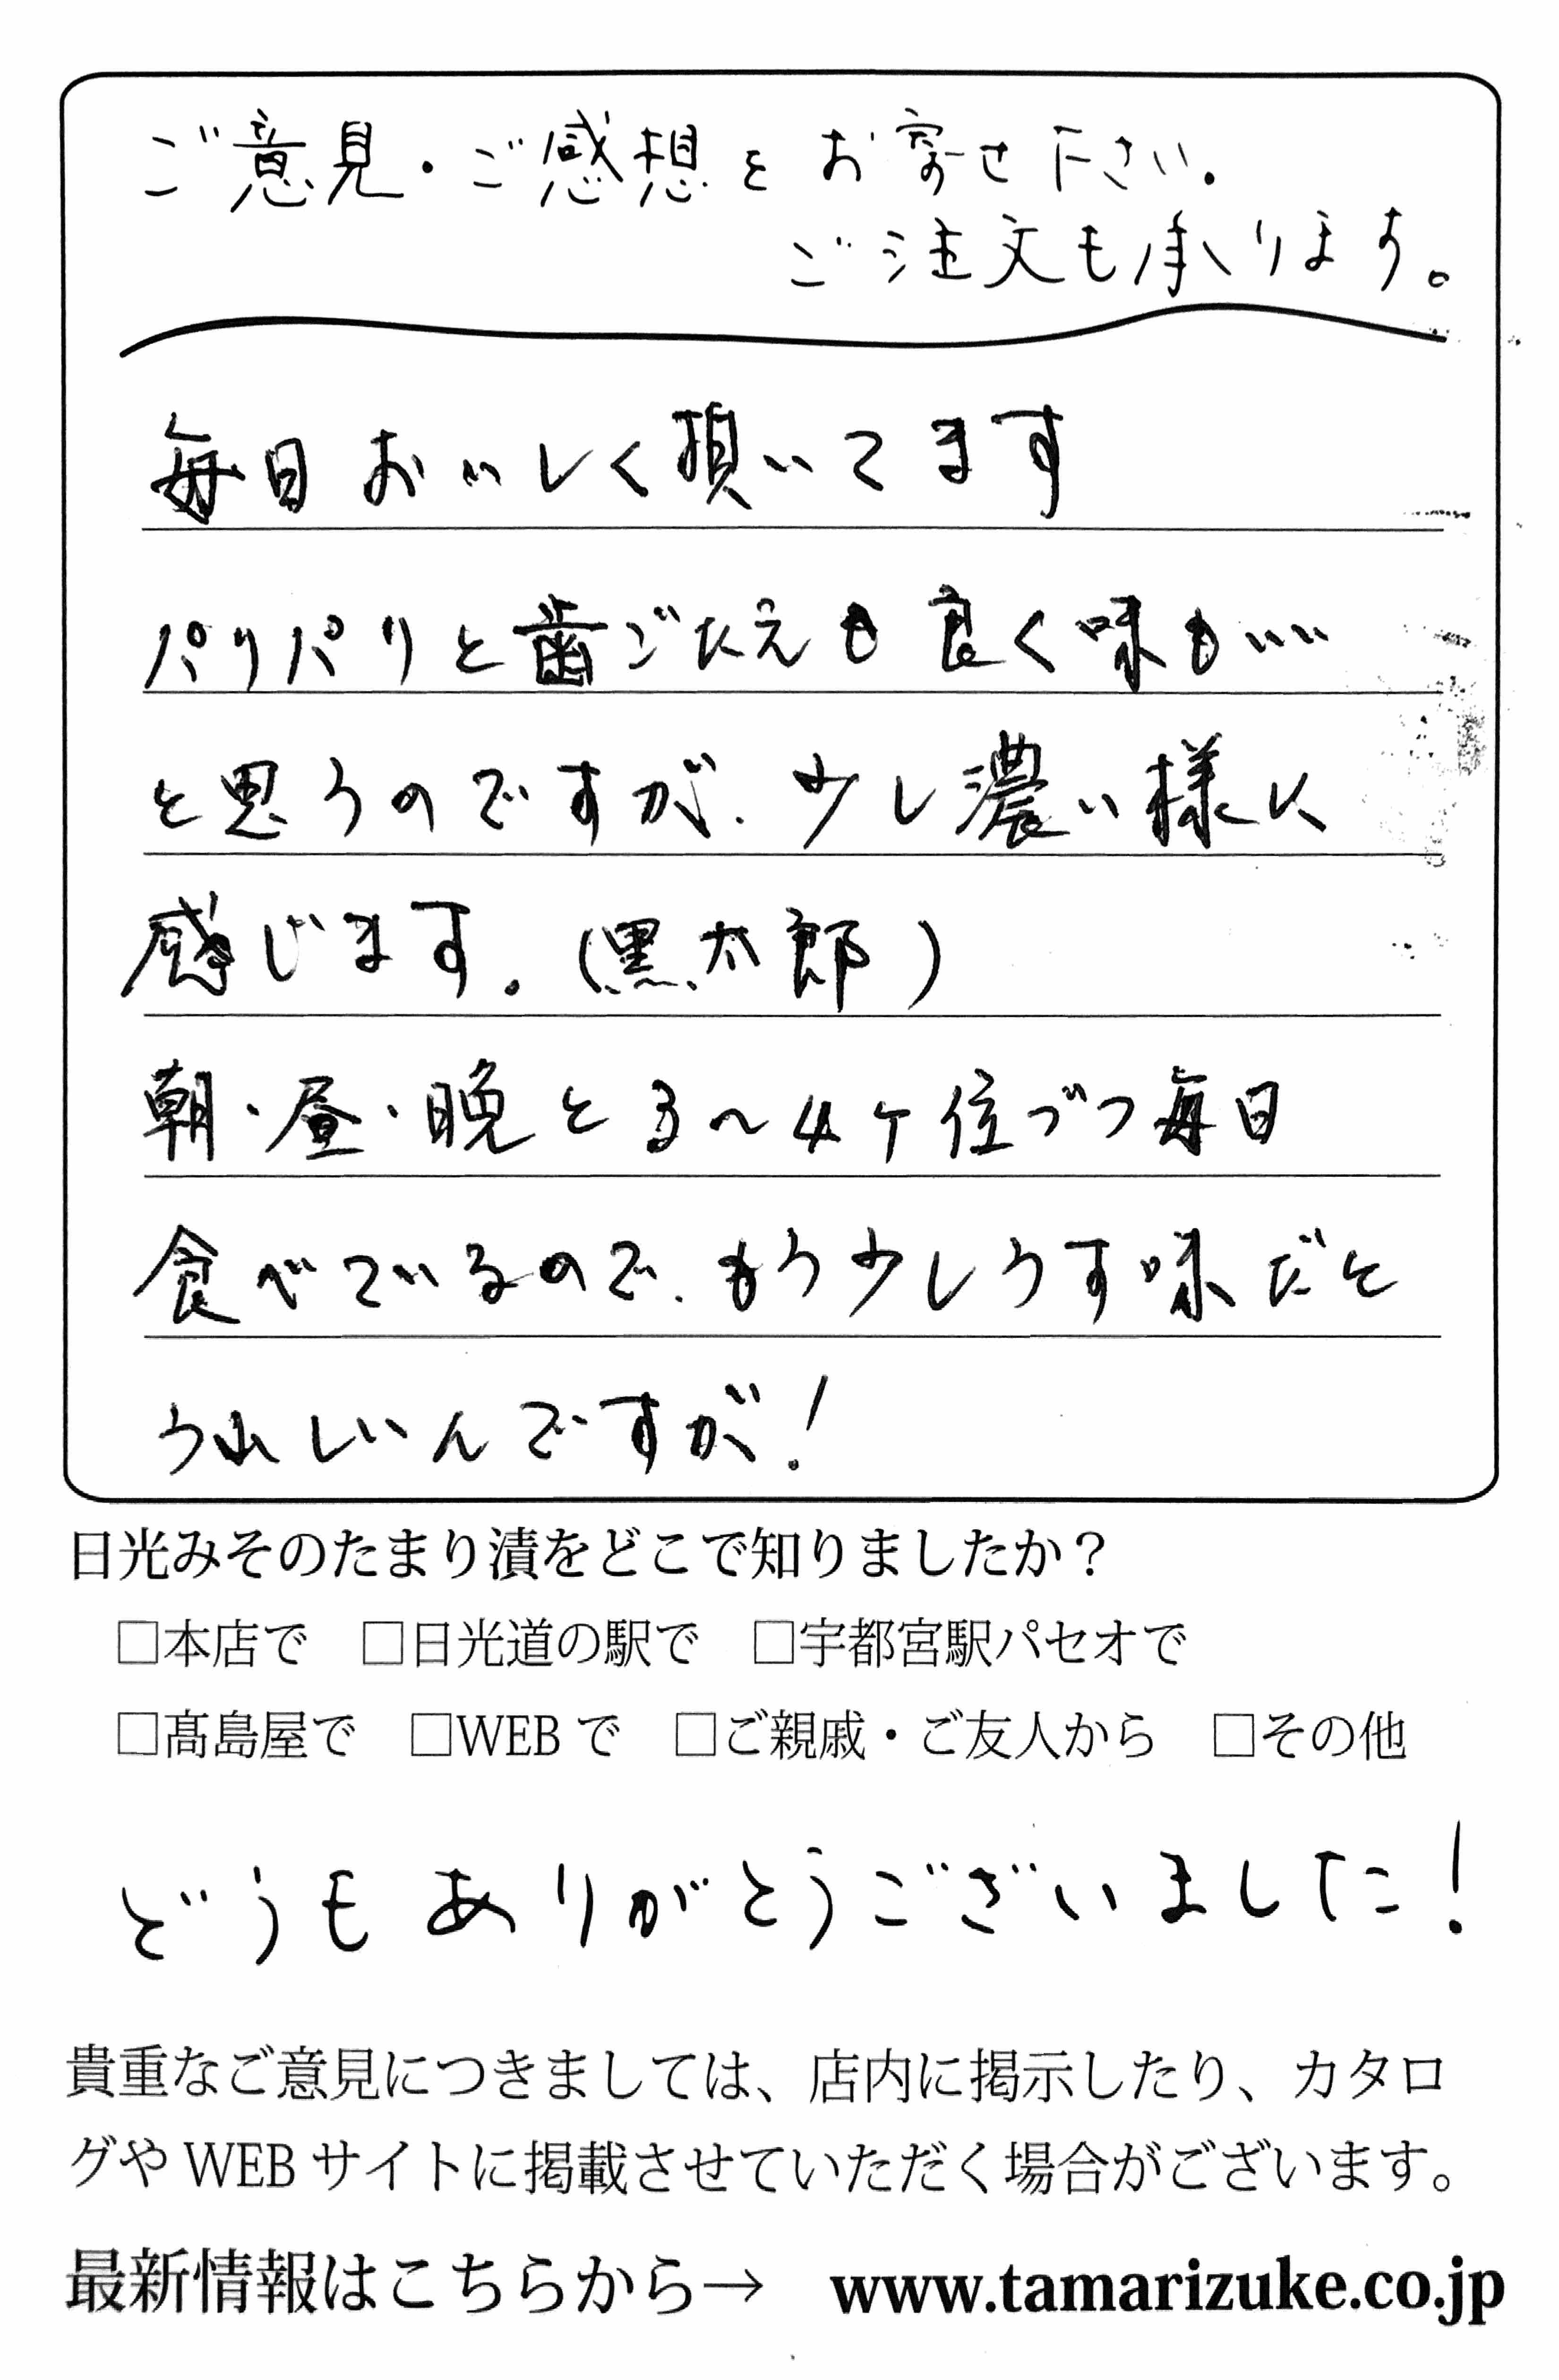 ご意見・ご感想をお寄せ下さい.
ご注文も承ります。
毎日おいしく頂いてます
パリパリと歯ごたえも良く味もいい
と思うのですが、少し濃い様に
感じます.(黒太郎)
朝・昼・晩と3〜4ヶ位づつ毎日
食べているので、もう少しうす味だと
うれしいんですが!
日光みそのたまり漬をどこで知りましたか?
□本店で □日光道の駅で □宇都宮駅パセオで
□髙島屋で □WEBで □ご親戚・ご友人から □その他
どうもありがとうございました!
貴重なご意見につきましては、店内に掲示したり、カタロ
グやWEBサイトに掲載させていただく場合がございます。
最新情報はこちらから→ www.tamarizuke.co.jp